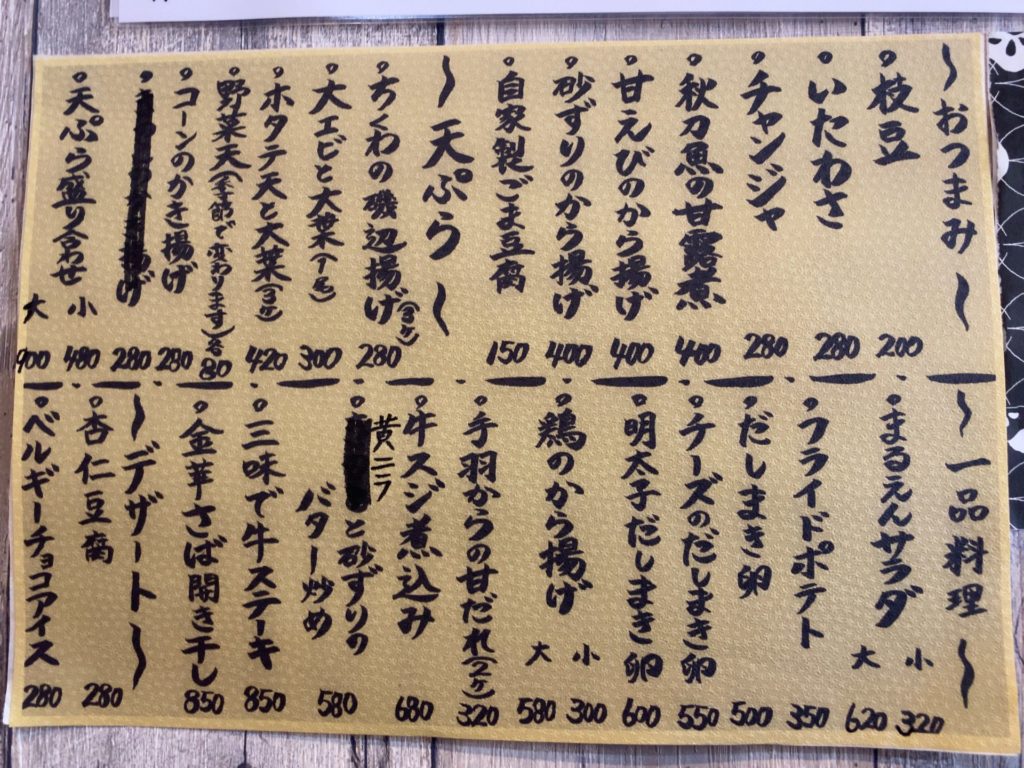 〜おつまみ〜
・枝豆 200
・いたわさ 280
・チャンジャ 280
・秋刀魚の甘露煮 400
・甘えびのから揚げ 400
・砂ずりのから揚げ 400
・自家製ごま豆腐 150
〜天ぷら〜
・ちくわの磯辺揚げ(3ヶ) 280
・大エビと大葉(1尾) 300
・ホタテ天と大葉(3ヶ) 420
・野菜天(季節で変わります)各80
・コーンのかき揚げ 280
・揚げ 280
・天ぷら盛り合わせ 小 480 大 900
〜一品料理〜
・まるえんサラダ 小 320 大 620
・フライドポテト 350
・だしまき卵 500
・チーズのだしまき卵 550
・明太子だしまき卵 600
・鶏のから揚げ 小 300 大 580
・手羽からの甘だれ(2ヶ) 320
・牛スジ煮込み 680
・黄ニラと砂ずりの
バター炒め 580
・三味で牛ステーキ 850
・金華さば開き干し 850
〜デザート〜
・杏仁豆腐 280
・ベルギーチョコアイス 280